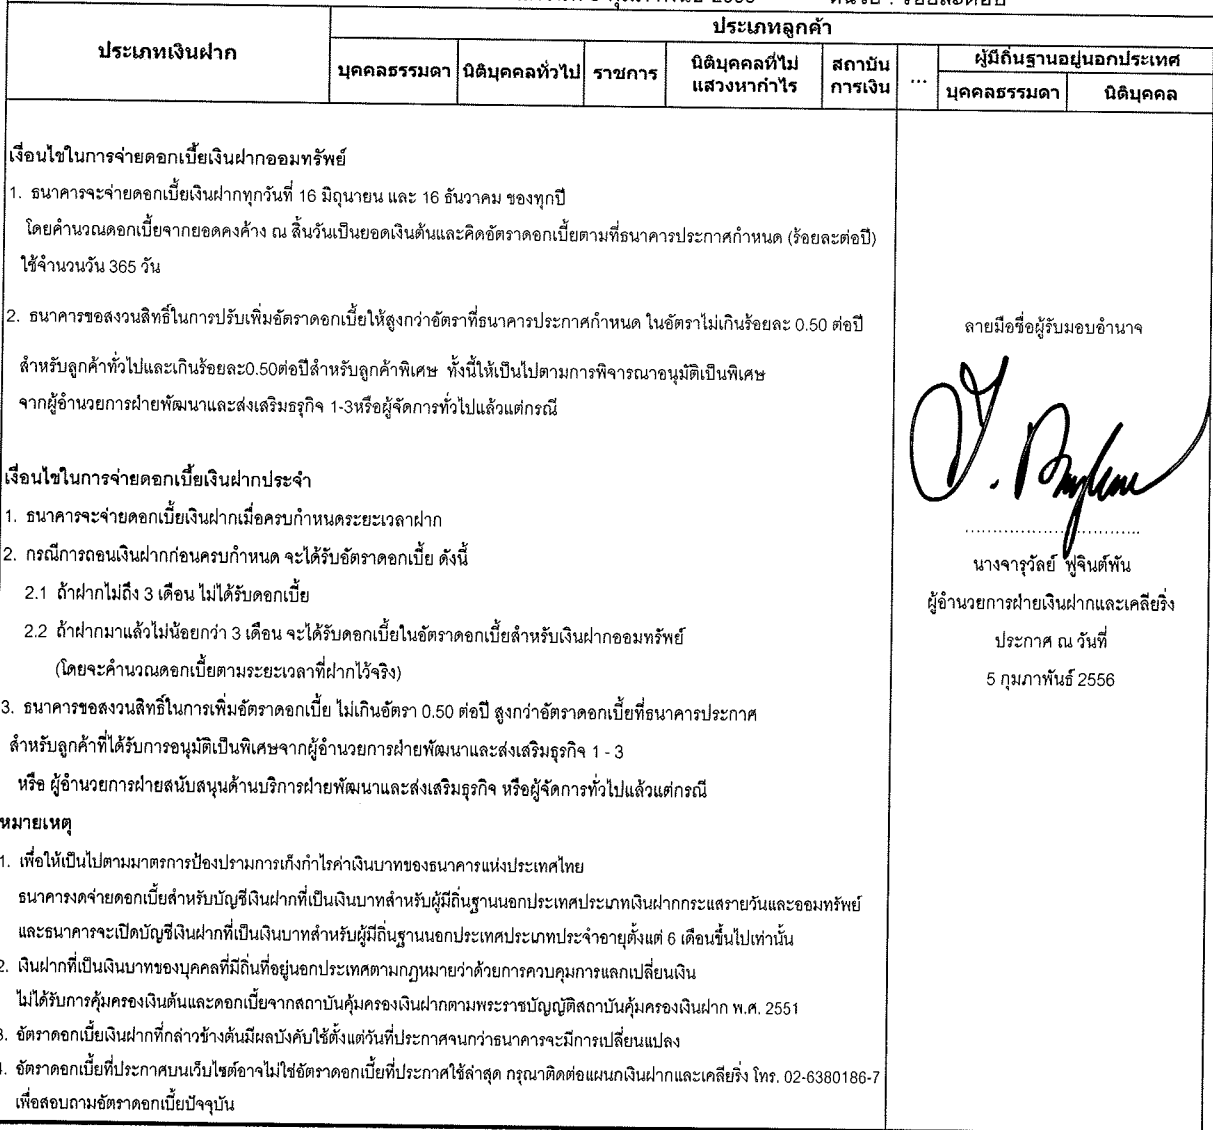 ประเภทเงินฝาก
ประเภทลูกค้า
บุคคลธรรมดา นิติบุคคลทั่วไป ราชการ นิติบุคคลที่ไม่แสวงหากำไร สถาบันการเงิน ... ผู้มีถิ่นฐานอยู่นอกประเทศ
บุคคลธรรมดา นิติบุคคล
เงื่อนไขในการจ่ายดอกเบี้ยเงินฝากออมทรัพย์
1. ธนาคารจะจ่ายดอกเบี้ยเงินฝากทุกวันที่ 16 มิถุนายน และ 16 ธันวาคม ของทุกปี
โดยคำนวณดอกเบี้ยจากยอดคงค้าง ณ สิ้นวันเป็นยอดเงินต้นและคิดอัตราดอกเบี้ยตามที่ธนาคารประกาศกำหนด (ร้อยละต่อปี)
ใช้จำนวนวัน 365 วัน
2. ธนาคารขอสงวนสิทธิ์ในการปรับเพิ่มอัตราดอกเบี้ยให้สูงกว่าอัตราที่ธนาคารประกาศกำหนด ในอัตราไม่เกินร้อยละ 0.50 ต่อปี
สำหรับลูกค้าทั่วไปและเกินร้อยละ0.50ต่อปีสำหรับลูกค้าพิเศษ ทั้งนี้ให้เป็นไปตามการพิจารณาอนุมัติเป็นพิเศษ
จากผู้อำนวยการฝ่ายพัฒนาและส่งเสริมธรุกิจ 1-3หรือผู้จัดการทั่วไปแล้วแต่กรณี
เงื่อนไขในการจ่ายดอกเบี้ยเงินฝากประจำ
1. ธนาคารจะจ่ายดอกเบี้ยเงินฝากเมื่อครบกำหนดระยะเวลาฝาก
2. กรณีการถอนเงินฝากก่อนครบกำหนด จะได้รับอัตราดอกเบี้ย ดังนี้
2.1 ถ้าฝากไม่ถึง 3 เดือน ไม่ได้รับดอกเบี้ย
2.2 ถ้าฝากมาแล้วไม่น้อยกว่า 3 เดือน จะได้รับดอกเบี้ยในอัตราดอกเบี้ยสำหรับเงินฝากออมทรัพย์
(โดยจะคำนวณดอกเบี้ยตามระยะเวลาที่ฝากไว้จริง)
3. ธนาคารขอสงวนสิทธิ์ในการเพิ่มอัตราดอกเบี้ย ไม่เกินอัตรา 0.50 ต่อปี สูงกว่าอัตราดอกเบี้ยที่ธนาคารประกาศ
สำหรับลูกค้าที่ได้รับการอนุมัติเป็นพิเศษจากผู้อำนวยการฝ่ายพัฒนาและส่งเสริมธุรกิจ 1 - 3
หรือ ผู้อำนวยการฝ่ายสนับสนุนด้านบริการฝ่ายพัฒนาและส่งเสริมธุรกิจ หรือผู้จัดการทั่วไปแล้วแต่กรณี
หมายเหตุ
1. เพื่อให้เป็นไปตามมาตรการป้องปรามการเก็งกำไรค่าเงินบาทของธนาคารแห่งประเทศไทย
ธนาคารงดจ่ายดอกเบี้ยสำหรับบัญชีเงินฝากที่เป็นเงินบาทสำหรับผู้มีถิ่นฐานนอกประเทศประเภทเงินฝากกระแสรายวันและออมทรัพย์
และธนาคารจะเปิดบัญชีเงินฝากที่เป็นเงินบาทสำหรับผู้มีถิ่นฐานนอกประเทศประเภทประจำอายุตั้งแต่ 6 เดือนขึ้นไปเท่านั้น
2. เงินฝากที่เป็นเงินบาทของบุคคลที่มีถิ่นที่อยู่นอกประเทศตามกฎหมายว่าด้วยการควบคุมการแลกเปลี่ยนเงิน
ไม่ได้รับการคุ้มครองเงินต้นและดอกเบี้ยจากสถาบันคุ้มครองเงินฝากตามพระราชบัญญัติสถาบันคุ้มครองเงินฝาก พ.ศ. 2551
3. อัตราดอกเบี้ยเงินฝากที่กล่าวข้างต้นมีผลบังคับใช้ตั้งแต่วันที่ประกาศจนกว่าธนาคารจะมีการเปลี่ยนแปลง
4. อัตราดอกเบี้ยที่ประกาศบนเว็บไซต์อาจไม่ใช่อัตราดอกเบี้ยที่ประกาศใช้ล่าสุด กรุณาติดต่อแผนกเงินฝากและเคลียริ่ง โทร. 02-6380186-7
เพื่อสอบถามอัตราดอกเบี้ยปัจจุบัน
ลายมือชื่อผู้รับมอบอำนาจ
..............................
นางจารุวัลย์ ฟูจินต์พัน
ผู้อำนวยการฝ่ายเงินฝากและเคลียริ่ง
ประกาศ ณ วันที่
5 กุมภาพันธ์ 2556